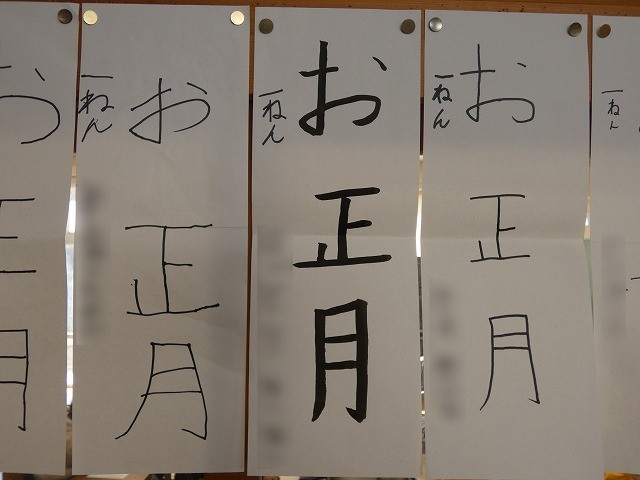 お正月
一ねん
お正月
一ねん
お正月
一ねん
お正月
一ねん